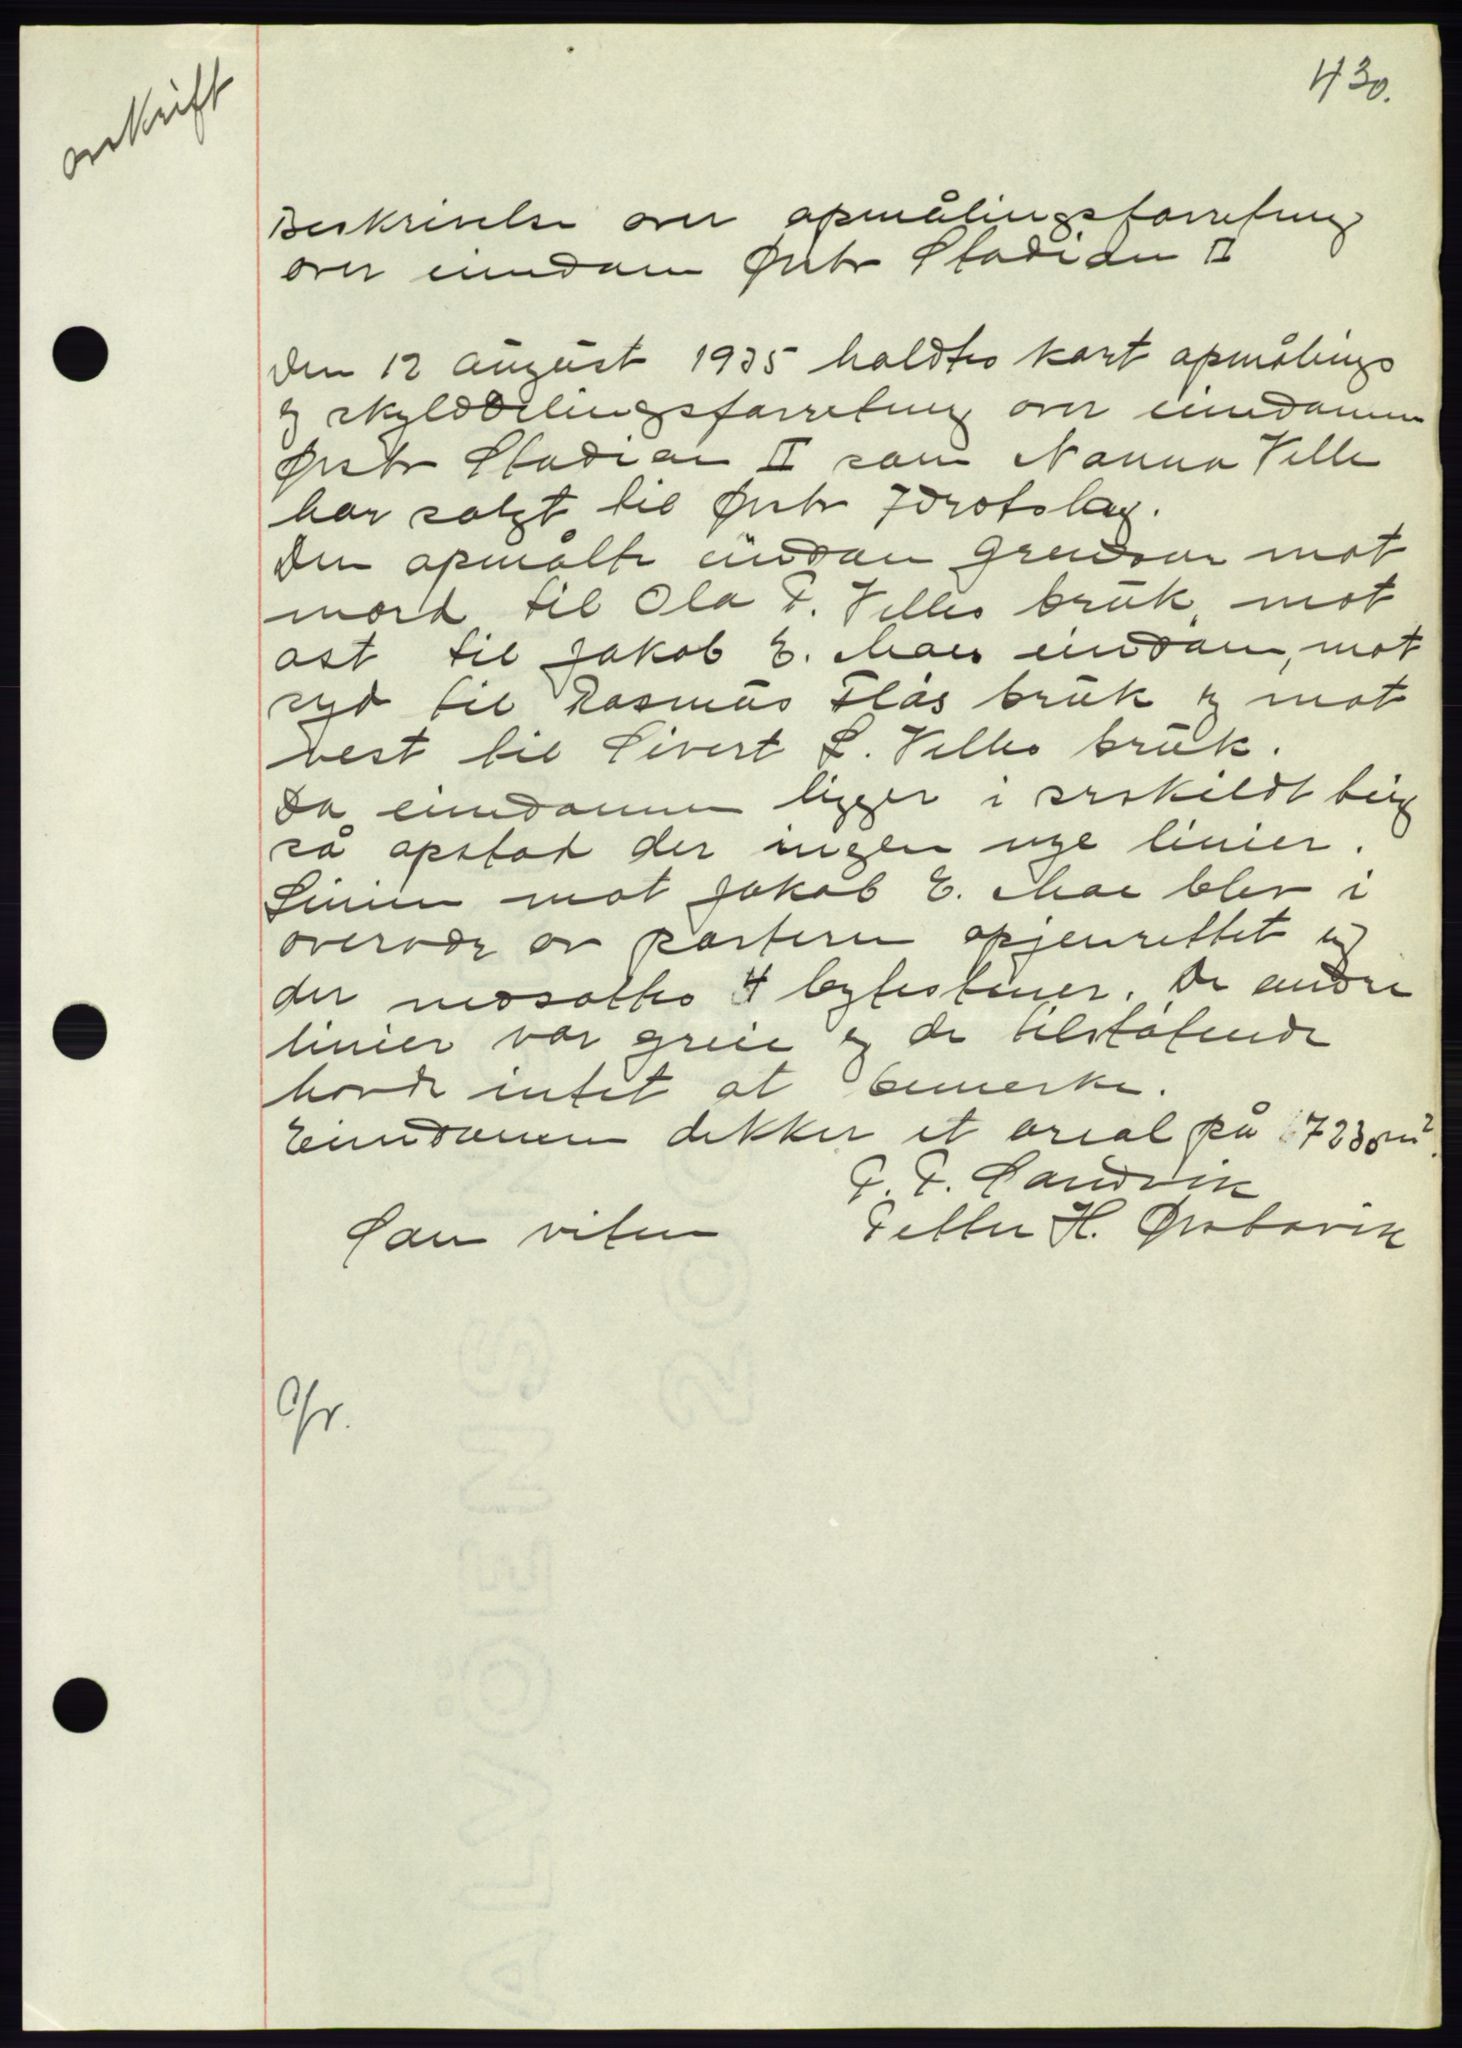 430.
avskrift
Beskrivelse over opmålingsforretning
over eiendom Ørsta Stadion II
Den 12 august 1935 holdtes kart opmålings
og skylddelingsforretning over eiendommen
Ørsta Stadion II som Nanna Velle
har solgt til Ørsta Idrotslag.
Den opmålte eiendom grendser mot
nord til Ola P. Velles bruk, mot
ost til Jakob E. Moes eiendom, mot
syd til Rasmus Flås bruk og mot
vest til Sivert L. Velles bruk.
Da eiendommen ligger i serskildt teig
så opstod der ingen nye linier.
Linien mot Jakob E. Moe blev i
overvær av parterne opjenrettet og
der nedsattes 4 bytesteiner. De andre
linier var greie og de tilstøtende
hadde intet at bemerke.
Eiendommen dekker et areal på 7230 m².
P. P. Sandvik
Som viten Petter H. Ørstavik